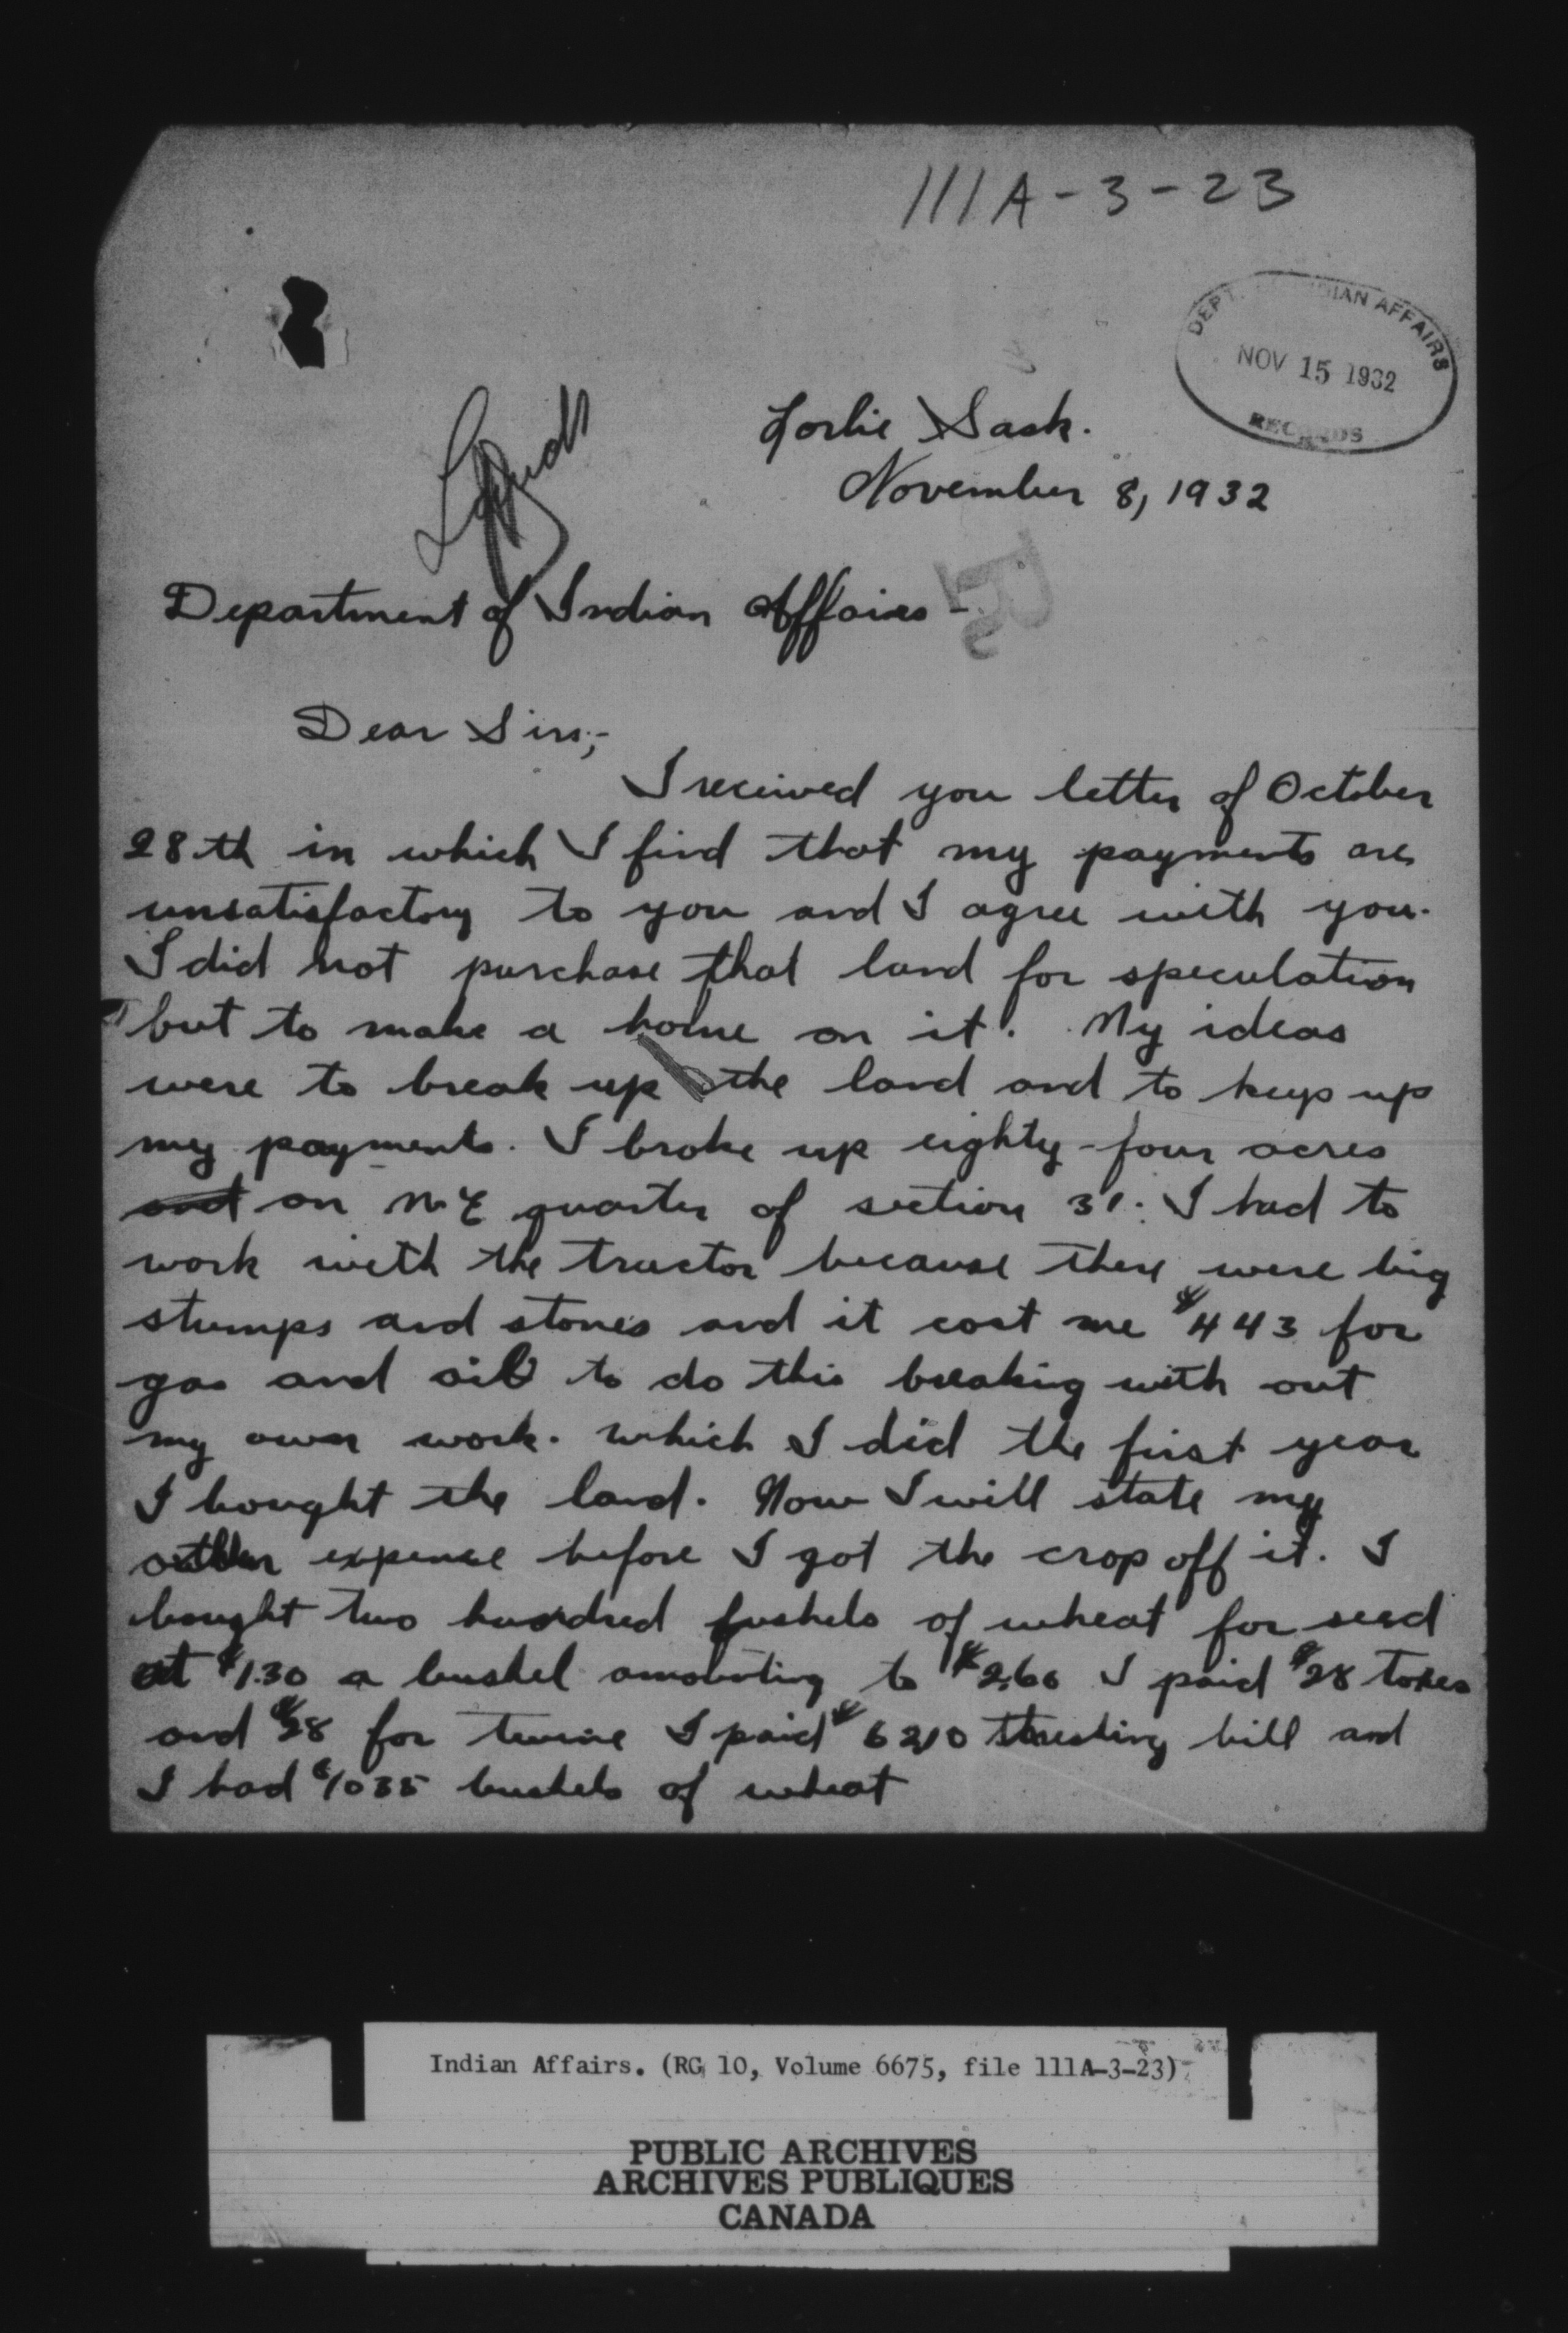 111A-3-23
DEPT. OF INDIAN AFFAIRS
NOV 15 1932
RECORDS
Lorlie Sask.
November 8, 1932
Department of Indian Affairs -
Dear Sirs;-
I received you letter of October
28th in which I find that my payments are
unsatisfactory to you and I agree with you.
I did not purchase that land for speculation
but to make a home on it. My ideas
were to break up the land and to keep up
my payments. I broke up eighty-four acres
and on N.E quarter of section 31. I had to
work with the tractor because there were big
stumps and stones and it cost me $443 for
gas and oil to do this breaking with out
my own work. which I did the first year
I bought the land. Now I will state my
other expense before I got the crop off it. I
bought two hundred bushels of wheat for seed
at $1.30 a bushel amounting to $260 I paid $28 taxes
and $28 for twine I paid $ 6210 threshing bill and
I had 1035 bushels of wheat
Indian Affairs. (RG 10, Volume 6675, file 111A-3-23)
PUBLIC ARCHIVES
ARCHIVES PUBLIQUES
CANADA